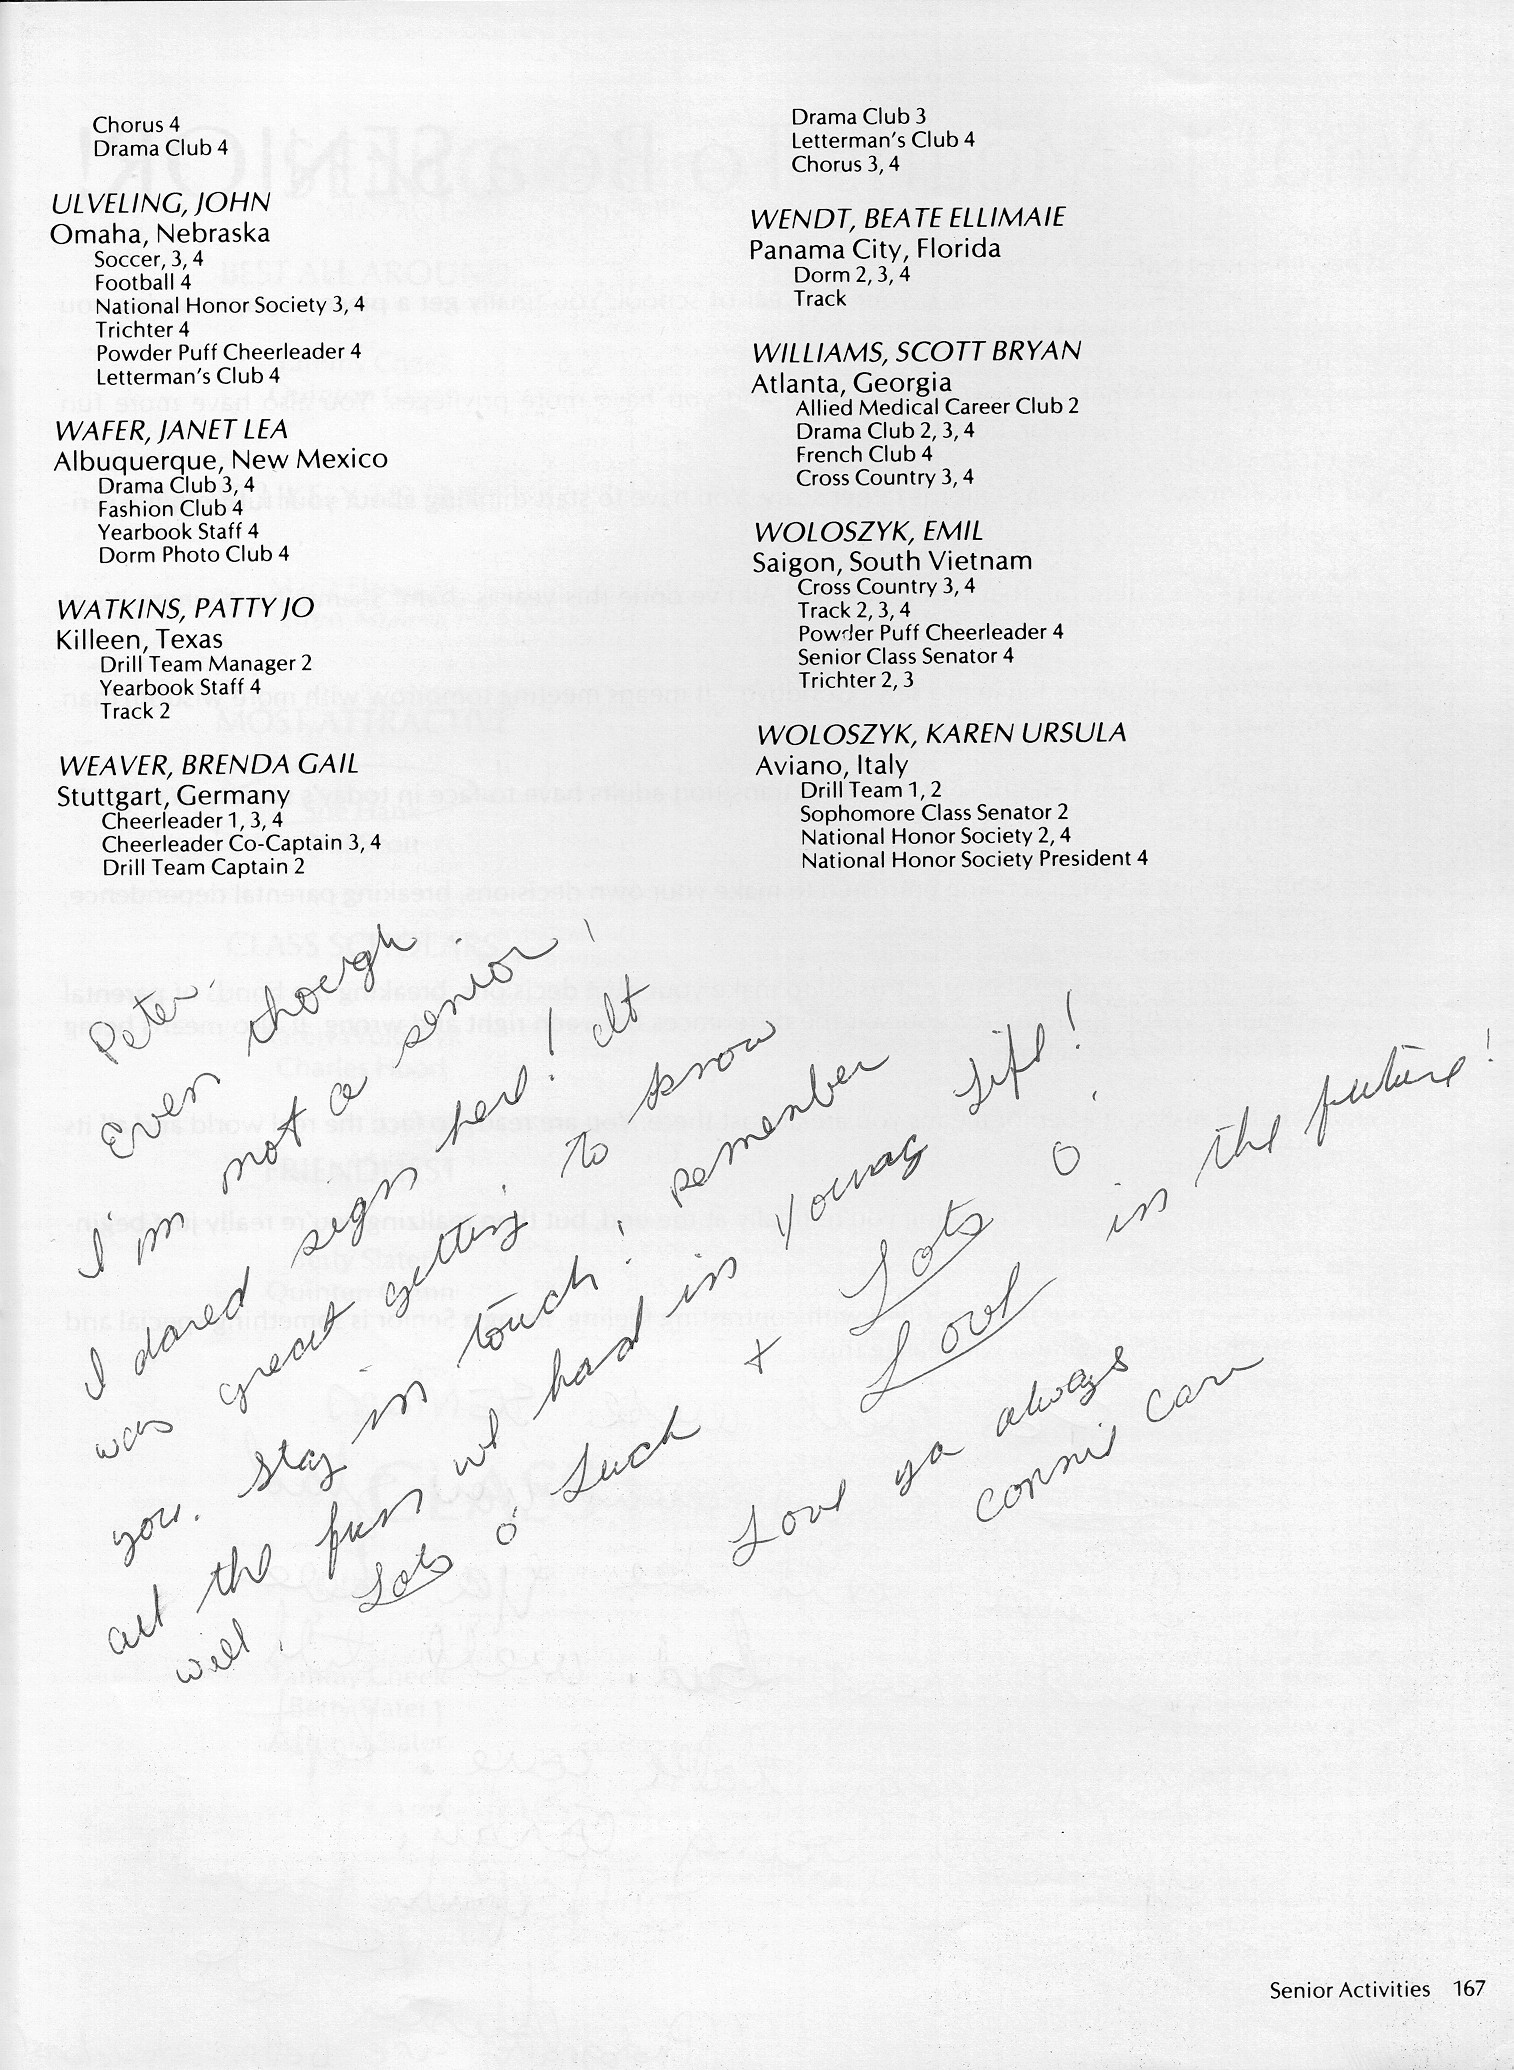 Chorus 4
Drama Club 4
ULVELING, JOHN
Omaha, Nebraska
Soccer, 3, 4
Football 4
National Honor Society 3, 4
Trichter 4
Powder Puff Cheerleader 4
Letterman's Club 4
WAFER, JANET LEA
Albuquerque, New Mexico
Drama Club 3, 4
Fashion Club 4
Yearbook Staff 4
Dorm Photo Club 4
WATKINS, PATTY JO
Killeen, Texas
Drill Team Manager 2
Yearbook Staff 4
Track 2
WEAVER, BRENDA GAIL
Stuttgart, Germany
Cheerleader 1, 3, 4
Cheerleader Co-Captain 3, 4
Drill Team Captain 2
Drama Club 3
Letterman's Club 4
Chorus 3, 4
WENDT, BEATE ELLIMAIE
Panama City, Florida
Dorm 2, 3, 4
Track
WILLIAMS, SCOTT BRYAN
Atlanta, Georgia
Allied Medical Career Club 2
Drama Club 2, 3, 4
French Club 4
Cross Country 3, 4
WOLOSZYK, EMIL
Saigon, South Vietnam
Cross Country 3, 4
Track 2, 3, 4
Powder Puff Cheerleader 4
Senior Class Senator 4
Trichter 2, 3
WOLOSZYK, KAREN URSULA
Aviano, Italy
Drill Team 1, 2
Sophomore Class Senator 2
National Honor Society 2, 4
National Honor Society President 4
Peter,
Even though
I'm not a senior!
I dared sign here! It
was great getting to know
you. Stay in touch! Remember
all the fun we had in Young Life!
will. Lots o' Luck + Lots o'
Love in the future!
Love ya always
Connie
Senior Activities 167